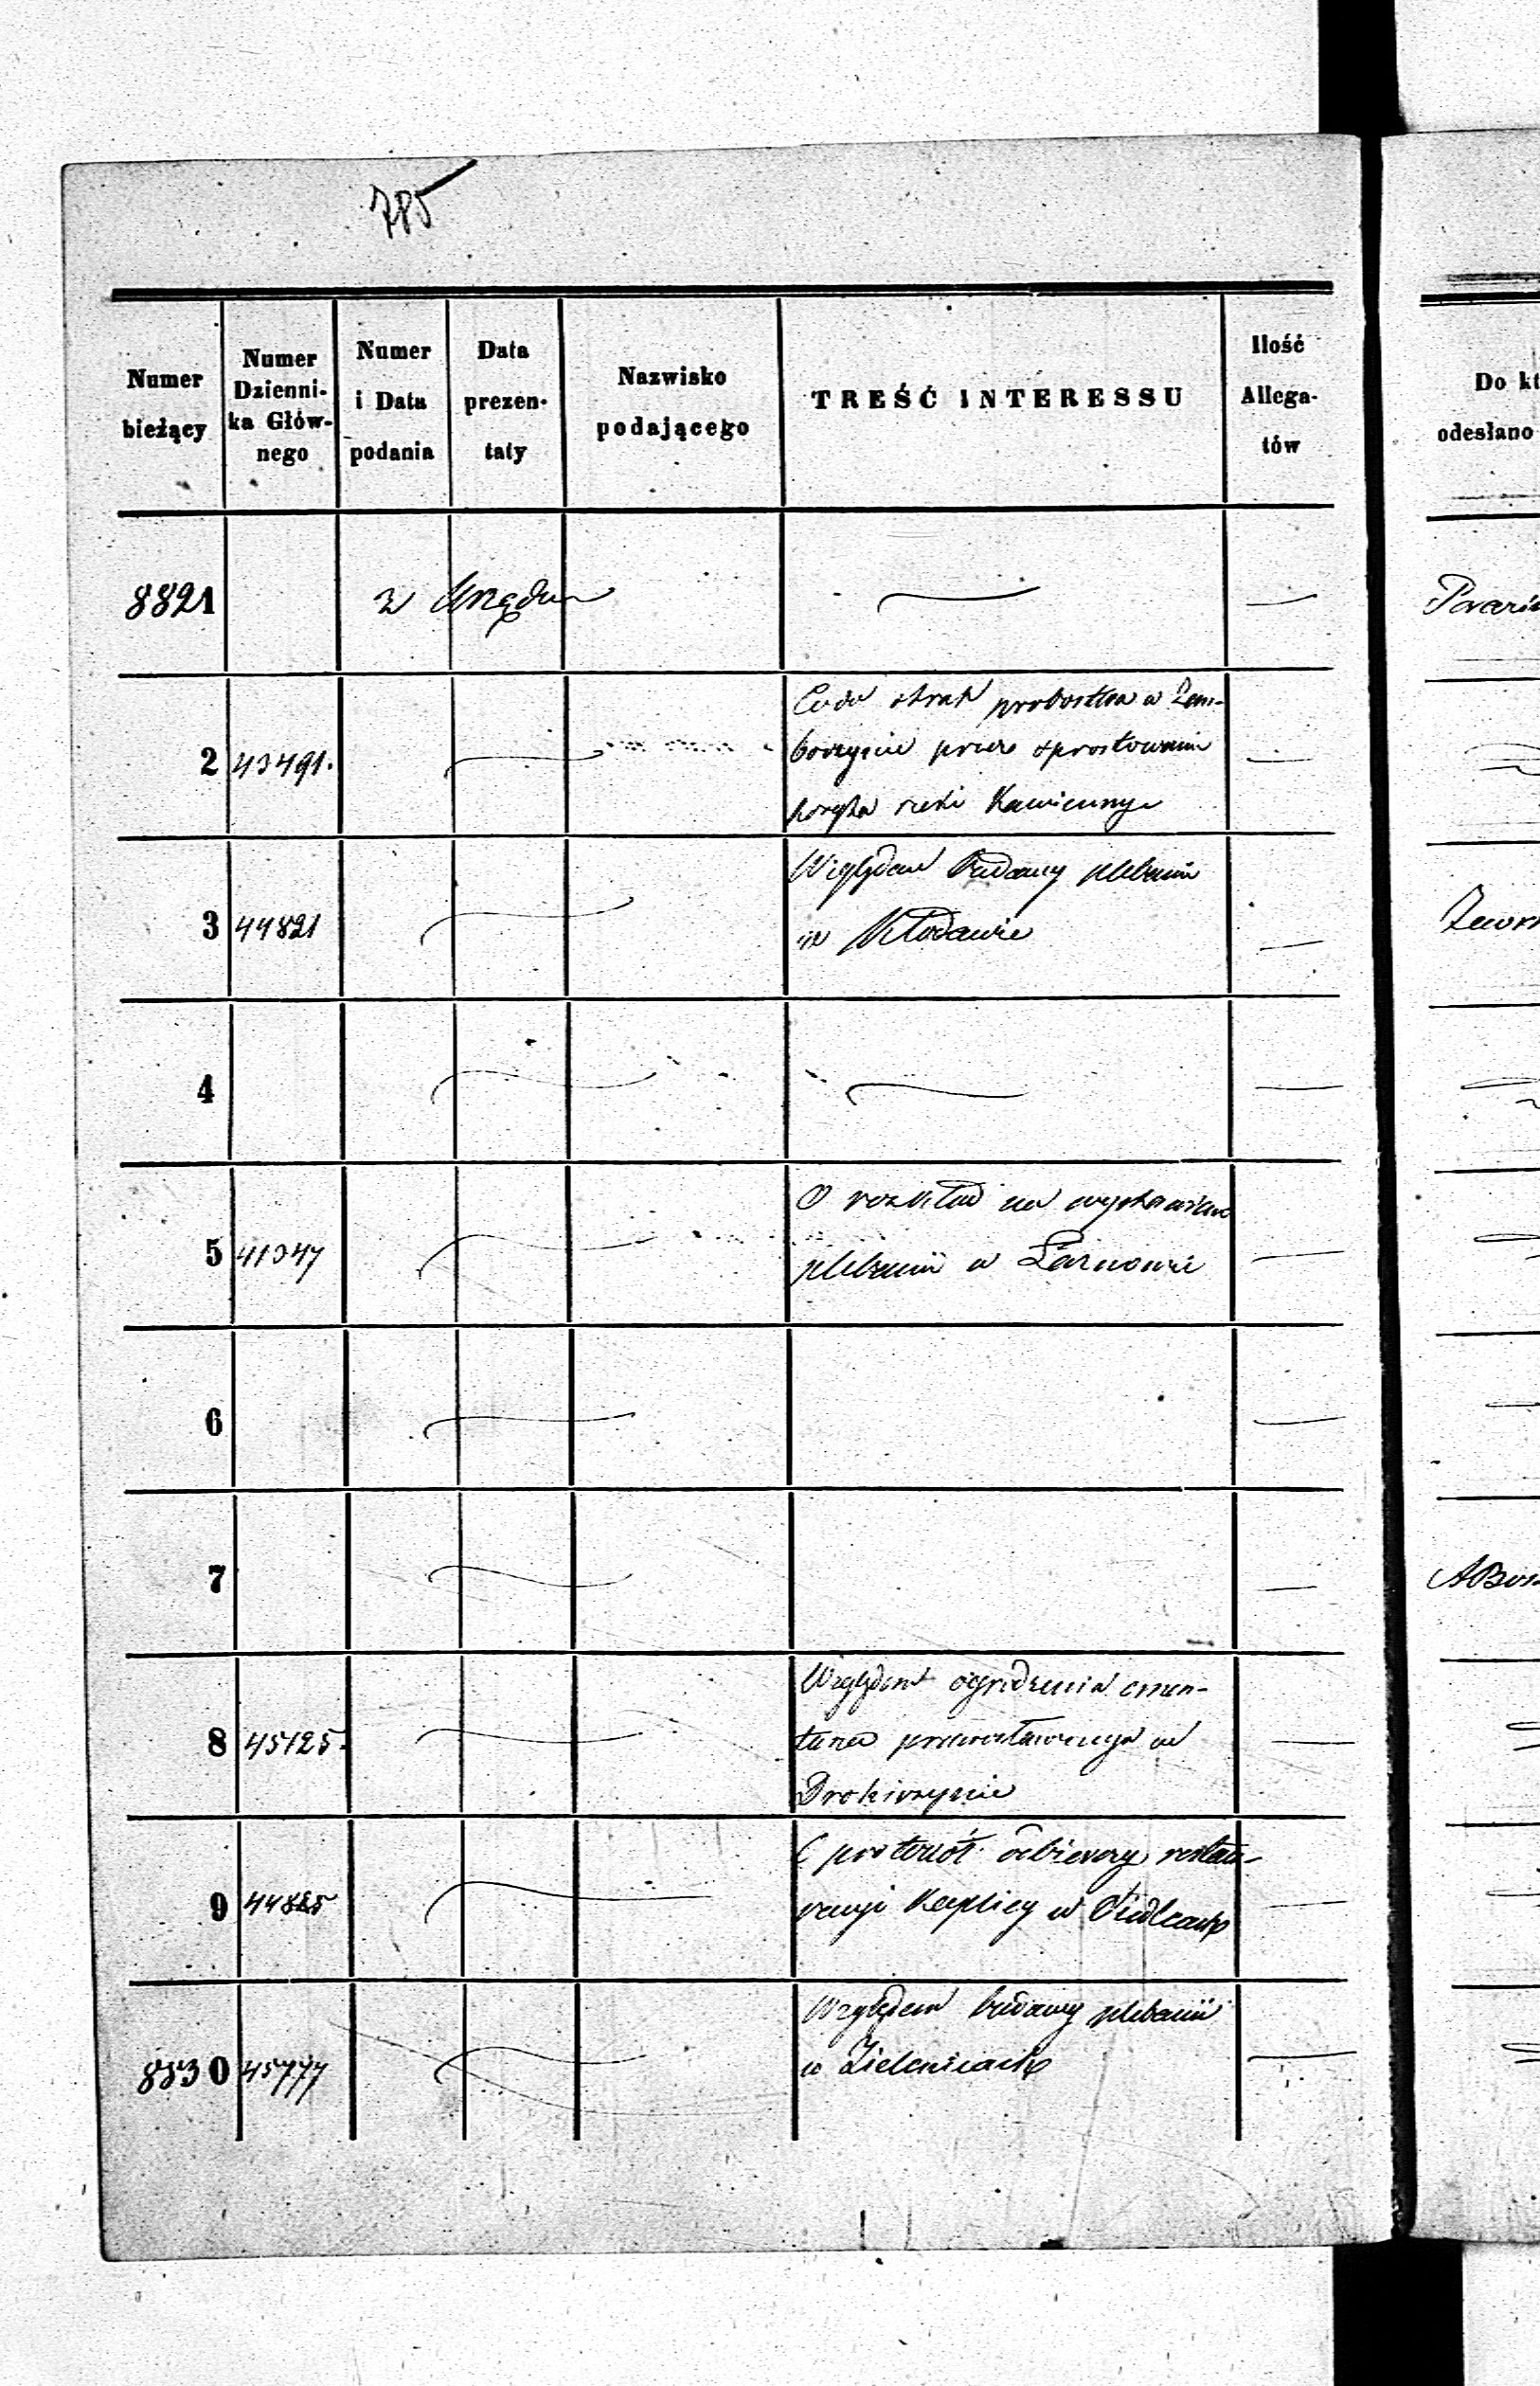 785
Numer bieżący
Numer Dzienni-
ka Głów-
nego
Numer
i Data
podania
Data
prezen-
taty
Nazwisko
podającego
TREŚĆ INTERESSU
Ilość
Allega-
tów
Do kt
odesłano
8821 z Urzędu
2 43491.
probostwa w Zem-
borzycie przez sprostowanie
rzeki Kamienny
3 44821
Względem budowy plebanii
w Kłodawie
4
5 41347
O rozkład na wystawienie
plebanii w Żarnowie
6
7
8 45125.
Względem ogrodzenia cmen-
tarza prawosławnego w
Drohiczynie
9 44825
protokół odbiorczy restau-
racyi Kaplicy w Siedlcach
8830 45777
Względem budowy plebanii
w Zielenicach